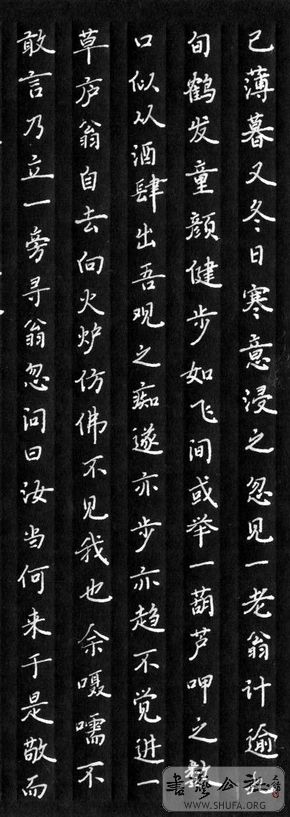 已薄暮又冬日寒意浸之忽见一老翁计逾九
旬鹤发童颜健步如飞间或举一葫芦呷之数
口似从酒肆出吾观之痴遂亦步亦趋不觉进一
草庐翁自去向火炉仿佛不见我也余嗫嚅不
敢言乃立一旁寻翁忽问曰汝当何来于是敬而
書藝公社
WWW.SHUFA.ORG